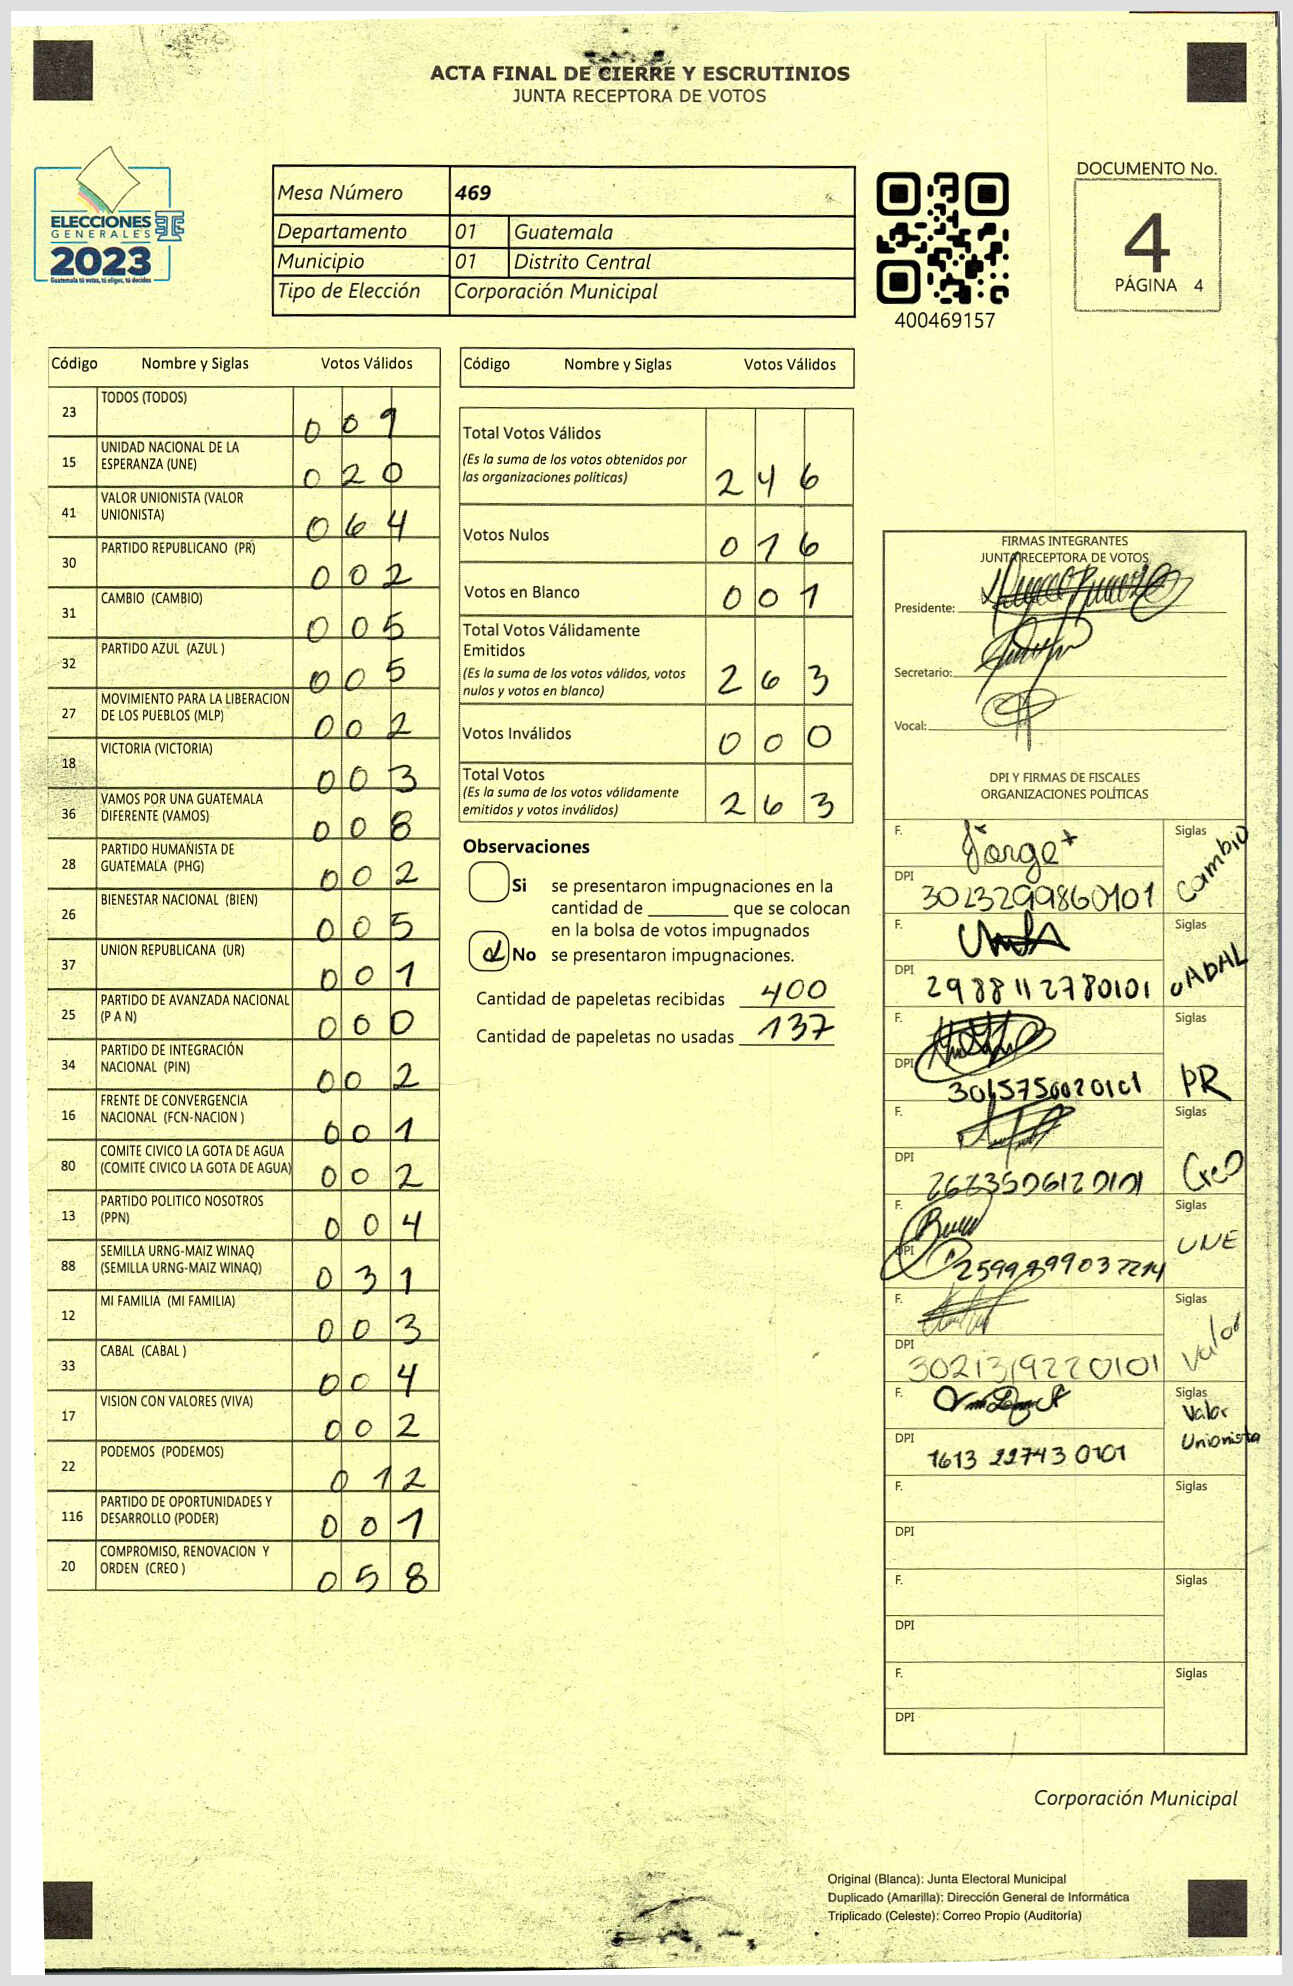 ACTA FINAL DE CIERRE Y ESCRUTINIOS
JUNTA RECEPTORA DE VOTOS
ELECCIONES
GENERALES
2023
Guatemala tú votas, tú eliges, tú decides
Mesa Número 469
Departamento 01 Guatemala
Municipio 01 Distrito Central
Tipo de Elección Corporación Municipal
400469157
DOCUMENTO No.
4
PÁGINA 4
Código Nombre y Siglas Votos Válidos
23 TODOS (TODOS) 0 0 9
15 UNIDAD NACIONAL DE LA ESPERANZA (UNE) 0 2 0
41 VALOR UNIONISTA (VALOR UNIONISTA) 0 6 4
30 PARTIDO REPUBLICANO (PR) 0 0 2
31 CAMBIO (CAMBIO) 0 0 5
32 PARTIDO AZUL (AZUL ) 0 0 5
27 MOVIMIENTO PARA LA LIBERACION DE LOS PUEBLOS (MLP) 0 0 2
18 VICTORIA (VICTORIA) 0 0 3
36 VAMOS POR UNA GUATEMALA DIFERENTE (VAMOS) 0 0 8
28 PARTIDO HUMANISTA DE GUATEMALA (PHG) 0 0 2
26 BIENESTAR NACIONAL (BIEN) 0 0 5
37 UNION REPUBLICANA (UR) 0 0 1
25 PARTIDO DE AVANZADA NACIONAL (P A N) 0 0 0
34 PARTIDO DE INTEGRACIÓN NACIONAL (PIN) 0 0 2
16 FRENTE DE CONVERGENCIA NACIONAL (FCN-NACION ) 0 0 1
80 COMITE CIVICO LA GOTA DE AGUA (COMITE CIVICO LA GOTA DE AGUA) 0 0 2
13 PARTIDO POLITICO NOSOTROS (PPN) 0 0 4
88 SEMILLA URNG-MAIZ WINAQ (SEMILLA URNG-MAIZ WINAQ) 0 3 1
12 MI FAMILIA (MI FAMILIA) 0 0 3
33 CABAL (CABAL ) 0 0 4
17 VISION CON VALORES (VIVA) 0 0 2
22 PODEMOS (PODEMOS) 0 1 2
116 PARTIDO DE OPORTUNIDADES Y DESARROLLO (PODER) 0 0 1
20 COMPROMISO, RENOVACION Y ORDEN (CREO ) 0 5 8
Código Nombre y Siglas Votos Válidos
Total Votos Válidos 2 4 6
(Es la suma de los votos obtenidos por
las organizaciones políticas)
Votos Nulos 0 1 6
Votos en Blanco 0 0 1
Total Votos Válidamente
Emitidos 2 6 3
(Es la suma de los votos válidos, votos
nulos y votos en blanco)
Votos Inválidos 0 0 0
Total Votos 2 6 3
(Es la suma de los votos válidamente
emitidos y votos inválidos)
Observaciones
Si se presentaron impugnaciones en la
cantidad de ________ que se colocan
en la bolsa de votos impugnados
No se presentaron impugnaciones.
Cantidad de papeletas recibidas 400
Cantidad de papeletas no usadas 137
FIRMAS INTEGRANTES
JUNTA RECEPTORA DE VOTOS
Presidente:
Secretario:
Vocal:
DPI Y FIRMAS DE FISCALES
ORGANIZACIONES POLÍTICAS
F. Jorge Siglas Cambio
DPI 3023299860101
F. Siglas
DPI 2988112780101
F. Siglas PR
DPI
F. Siglas Creo
DPI
F. Siglas UNE
DPI
F. Siglas Valor
DPI 3021319220101
F. Siglas Valor Unionista
DPI 1613 22743 0101
F. Siglas
DPI
F. Siglas
DPI
F. Siglas
DPI
Corporación Municipal
Original (Blanca): Junta Electoral Municipal
Duplicado (Amarilla): Dirección General de Informática
Triplicado (Celeste): Correo Propio (Auditoría)